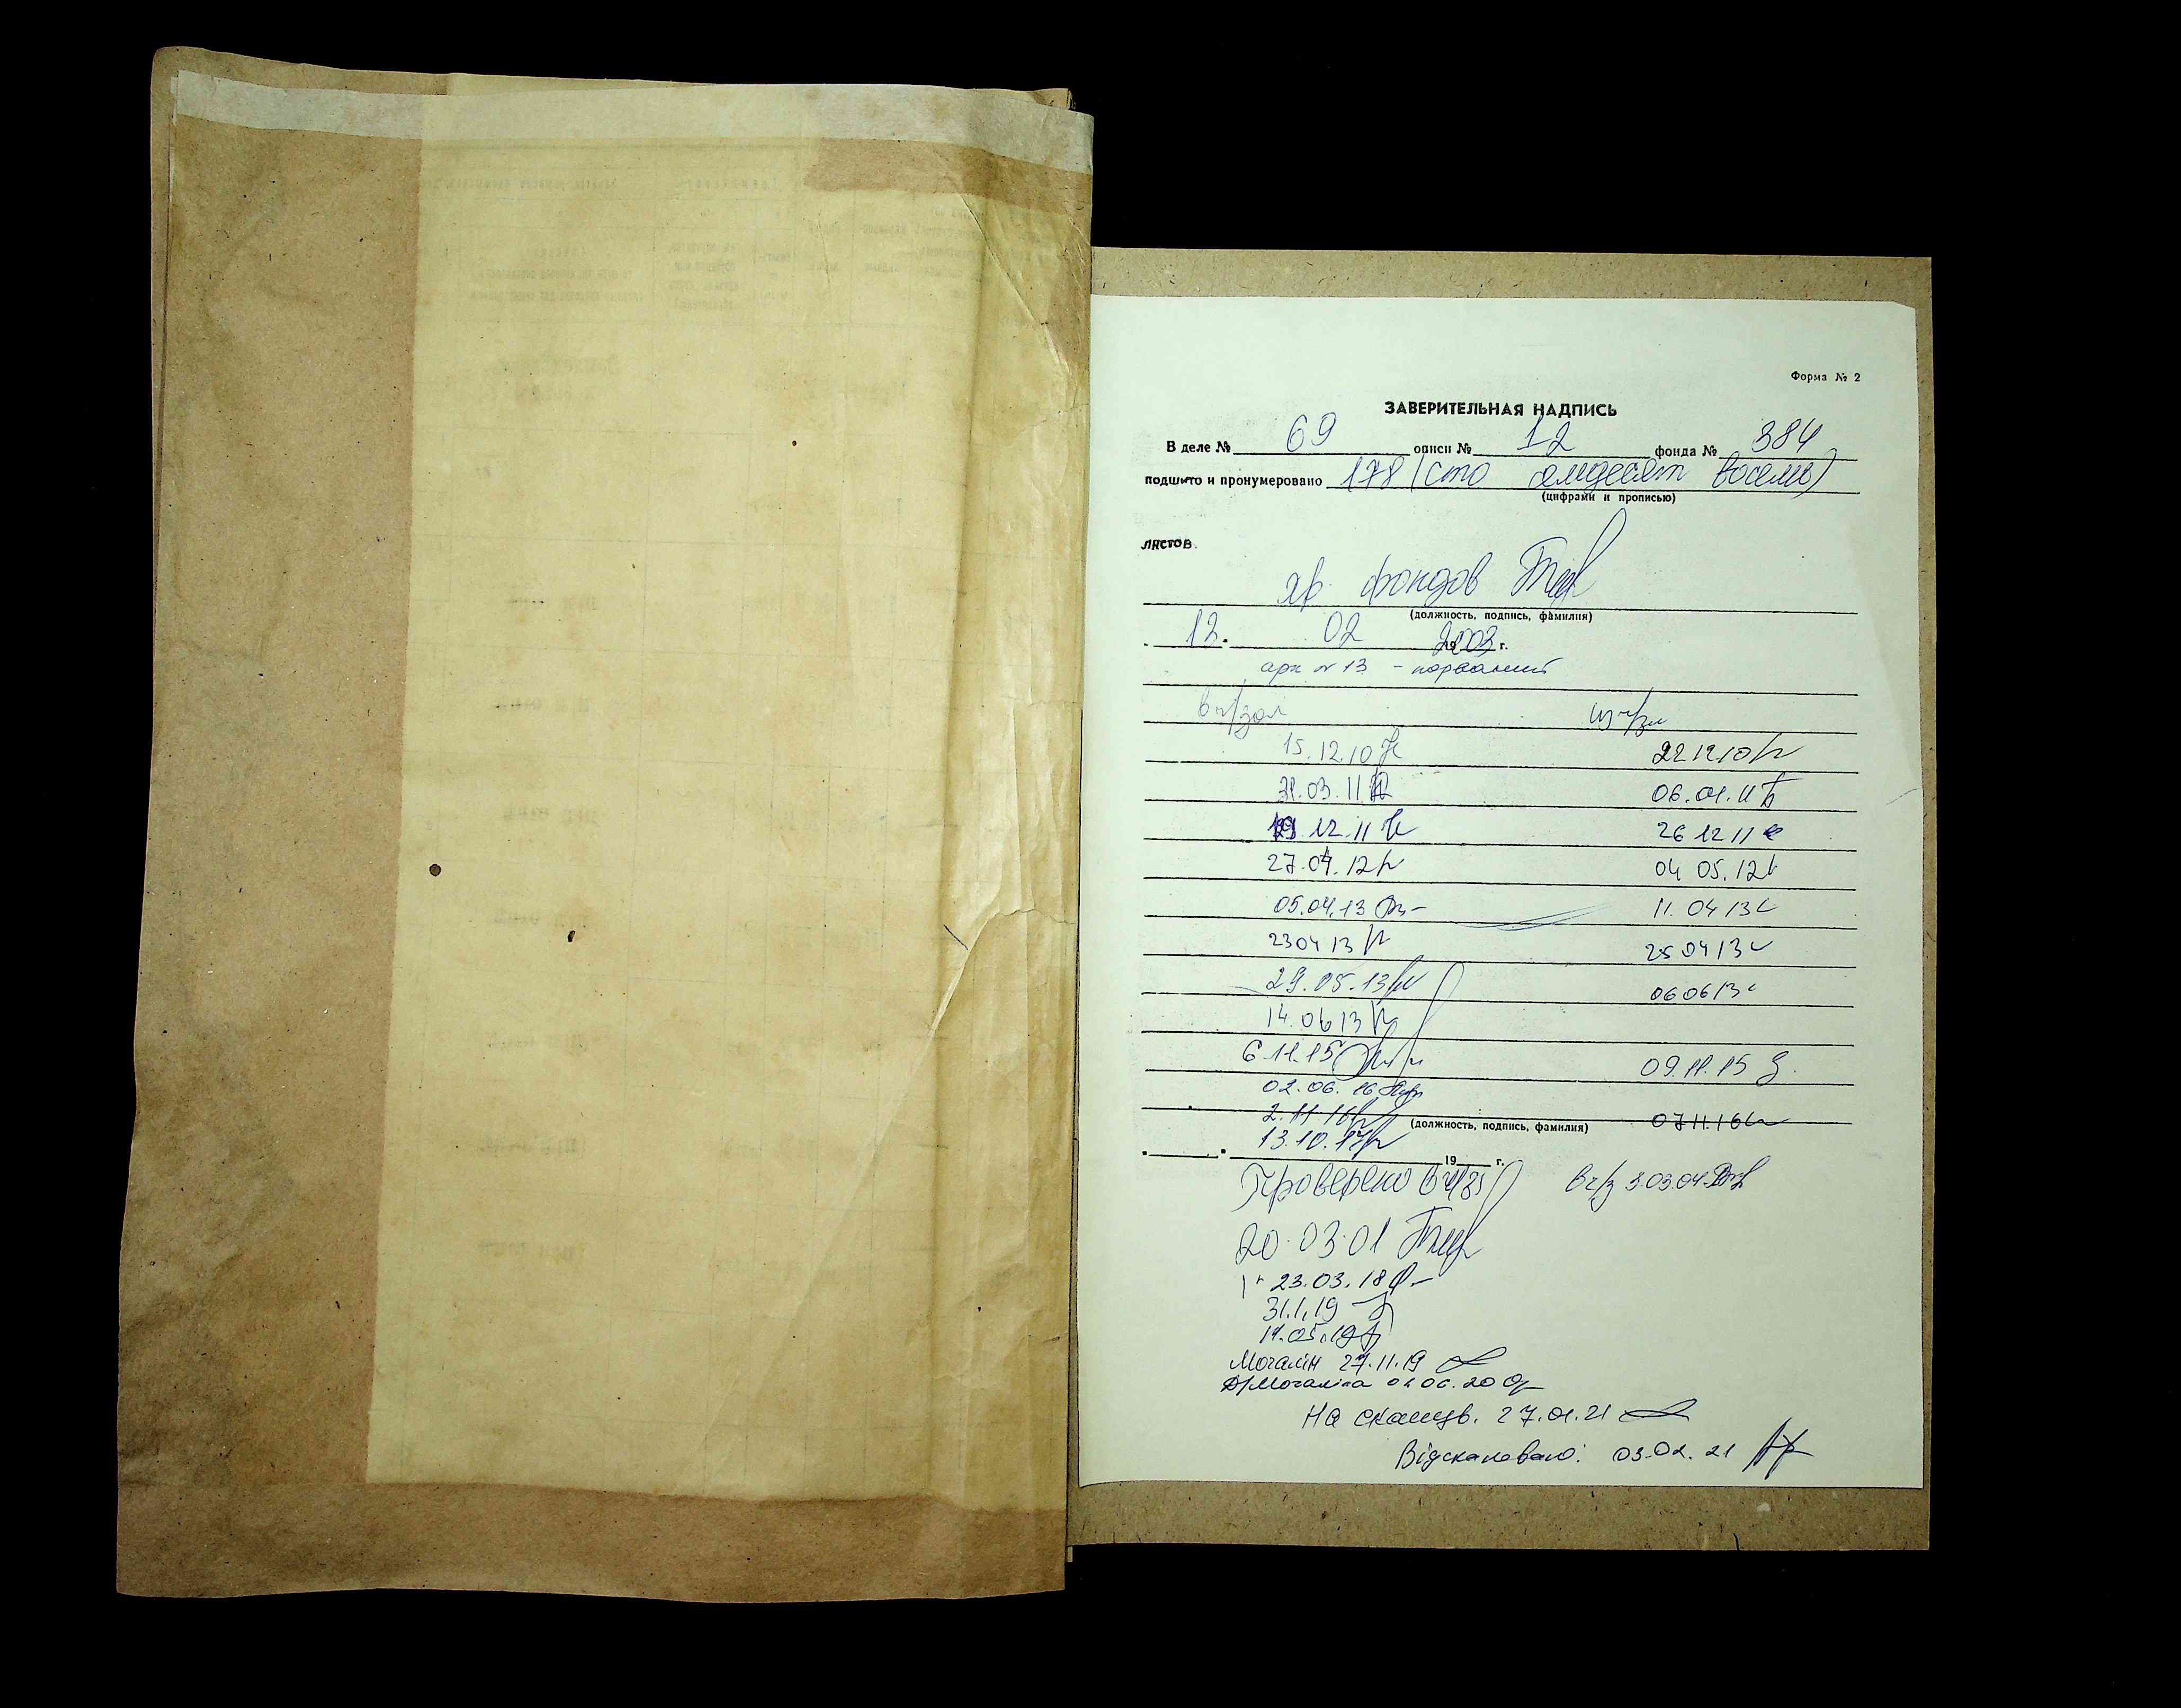 Форма № 2
ЗАВЕРИТЕЛЬНАЯ НАДПИСЬ
В деле № 69 описи № 12 фонда № 384
подшито и пронумеровано 178 (сто семдесят восемь)
(цифрами и прописью)
листов.
хр. фондов
(должность, подпись, фамилия)
12. 02 2003 г.
арк № 13 - порваний
в ч/зал из ч/з
15.12.10 22 12 10
31.03.11 06.04.11
19.12.11 26 12 11
27.04.12 04 05.12
05.04.13 11.04 13
23 04 13 25 04 13
29.05.13 06 06 13
14.06 13
6.11.15 09.11.15
02.06.16
2.11 16 07.11.16
(должность, подпись, фамилия)
13.10.17
19 г.
Проверено в ч/з 3.03.04
20.03.01
23.03.18
31.1.19
17.05.19
27.11.19
02 06.20
На сканув. 27.01.21
Відскановано: 03.02.21